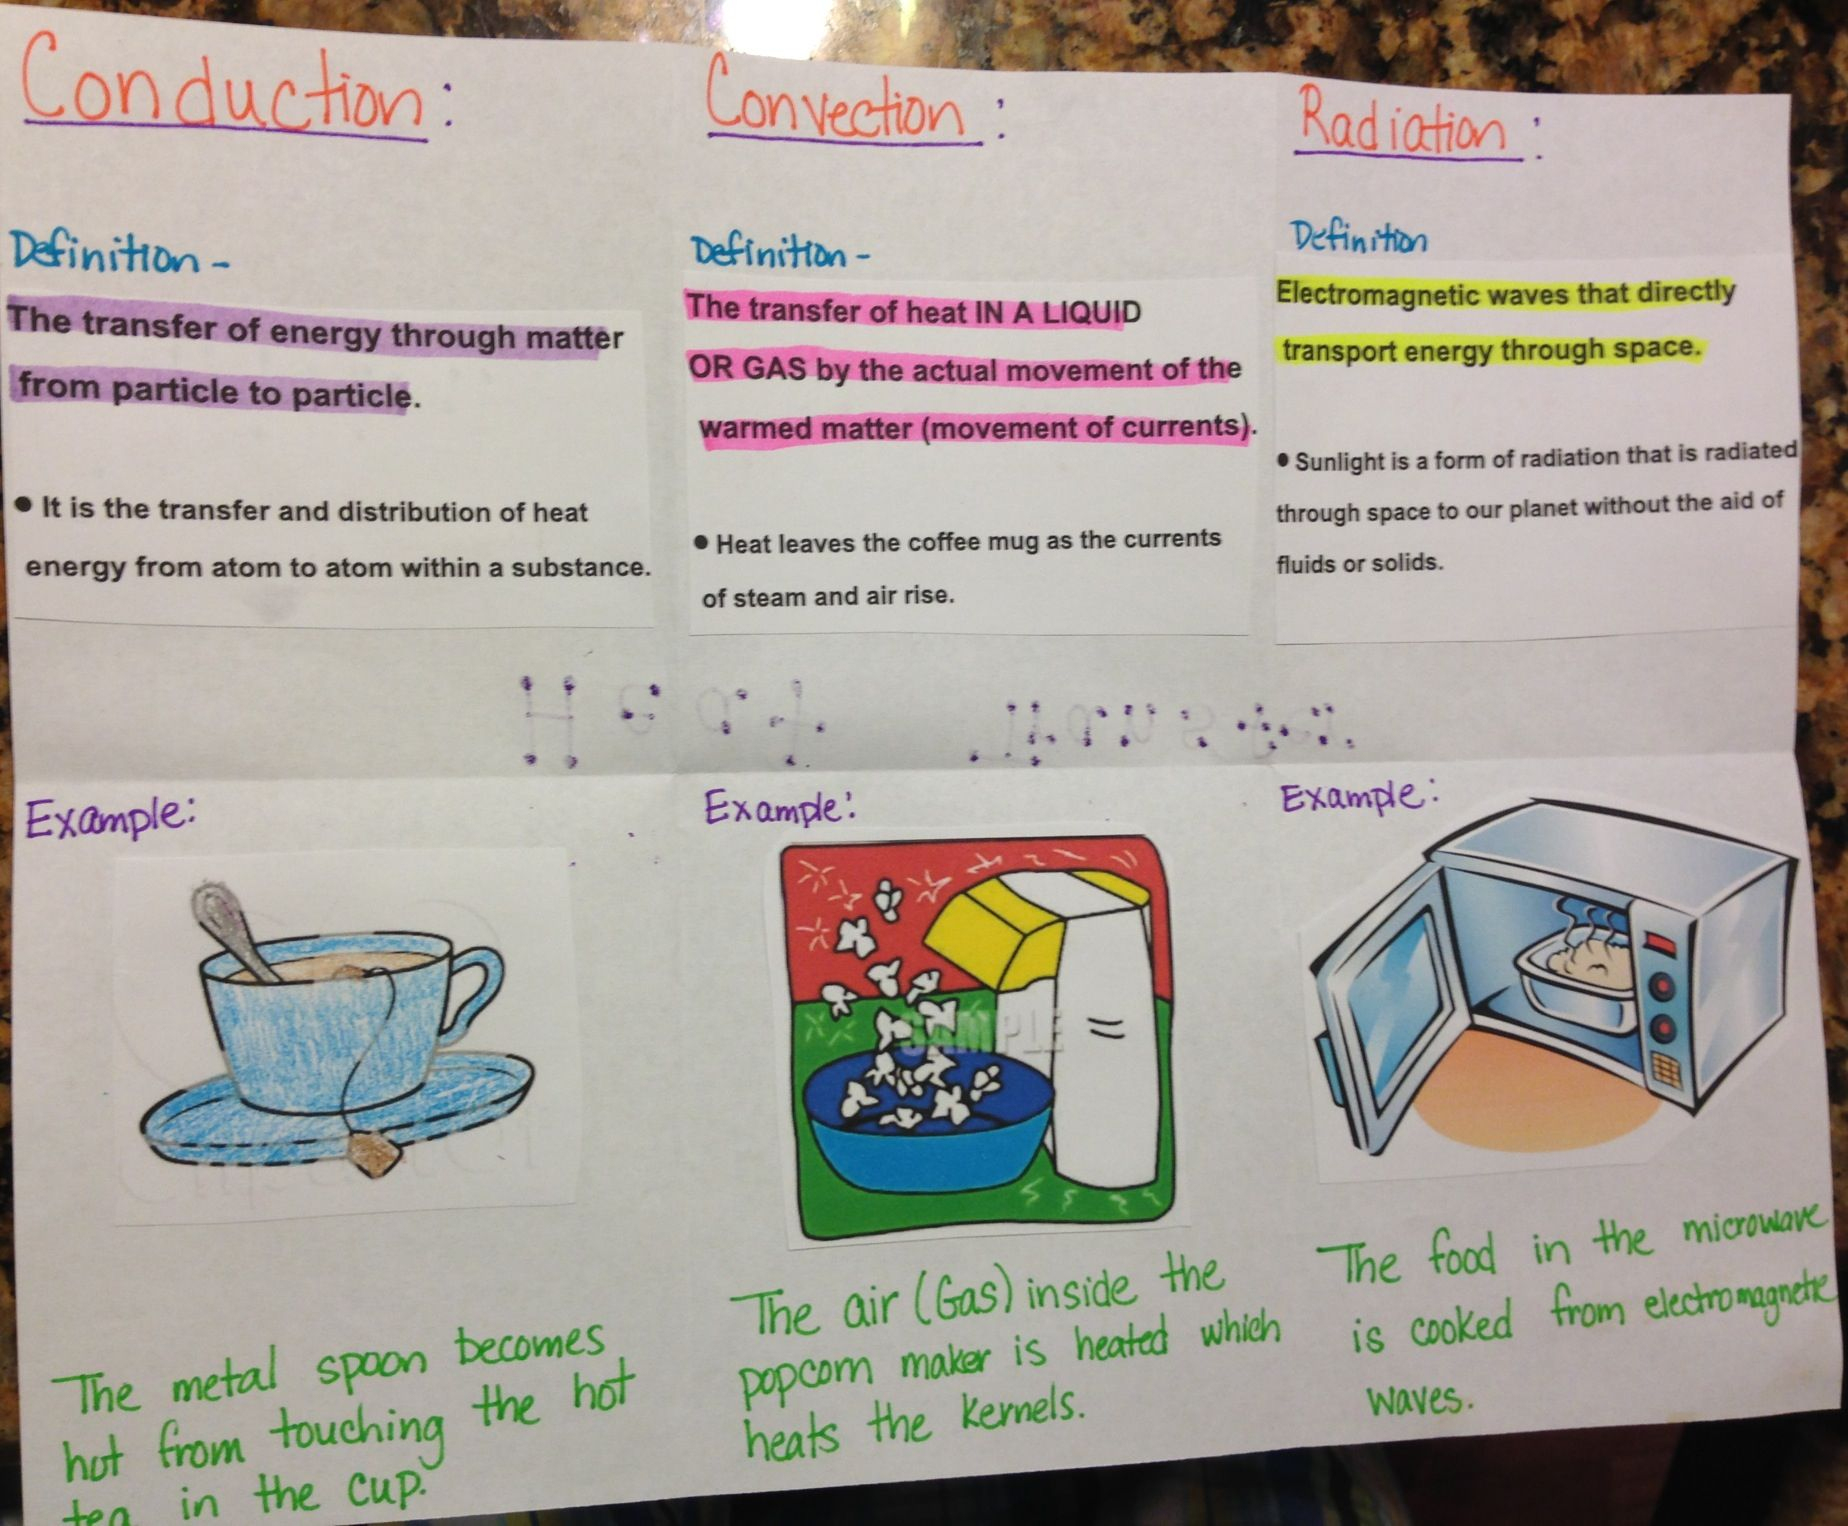 Conduction:
Definition-
The transfer of energy through matter
from particle to particle.
● It is the transfer and distribution of heat
energy from atom to atom within a substance.
Example:
The metal spoon becomes
hot from touching the hot
tea in the cup.
Convection:
Definition-
The transfer of heat IN A LIQUID
OR GAS by the actual movement of the
warmed matter (movement of currents).
● Heat leaves the coffee mug as the currents
of steam and air rise.
Example:
SAMPLE
The air (Gas) inside the
popcorn maker is heated which
heats the kernels.
Radiation:
Definition
Electromagnetic waves that directly
transport energy through space.
● Sunlight is a form of radiation that is radiated
through space to our planet without the aid of
fluids or solids.
Example:
The food in the microwave
is cooked from electromagnetic
waves.